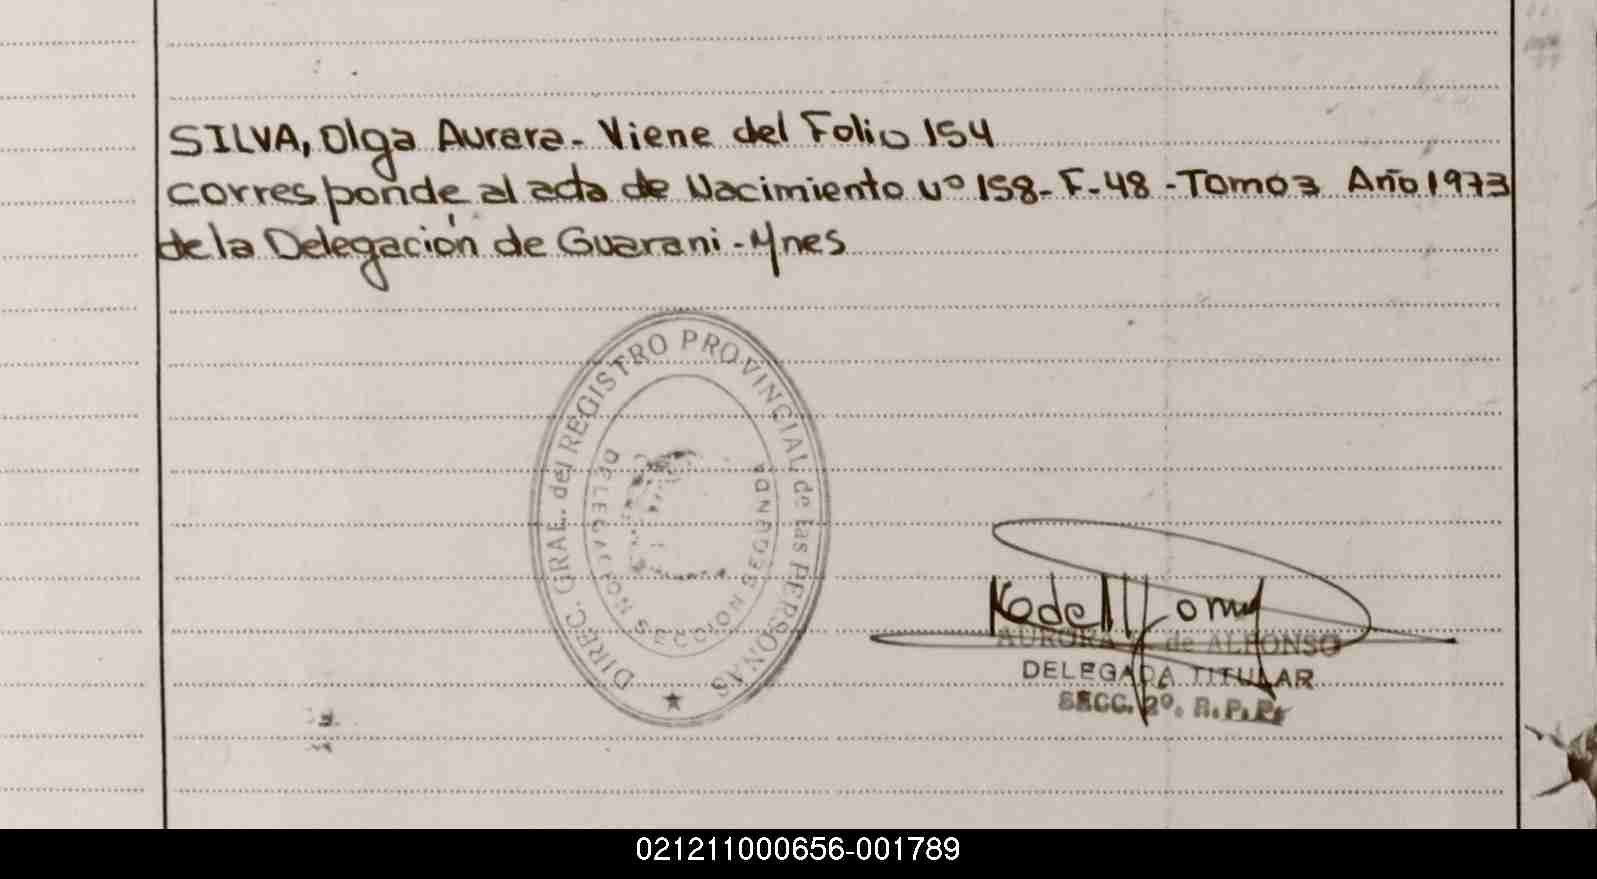 SILVA, Olga Aurora - Viene del Folio 154
corresponde al acta de Nacimiento Nº 158 - F - 48 - Tomo 3 Año 1973
de la Delegación de Guarani - Mnes
DIREC. GRAL. del REGISTRO PROVINCIAL de las PERSONAS
DELEGACION SECCION SEGUNDA
AURORA de ALFONSO
DELEGADA TITULAR
SECC. 2º. R.P.P.
021211000656-001789